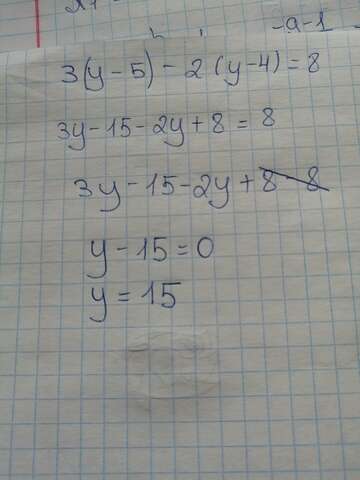 -a-1
3(y-5)-2(y-4)=8
3y-15-2y+8=8
3y-15-2y+8-8
y-15=0
y=15